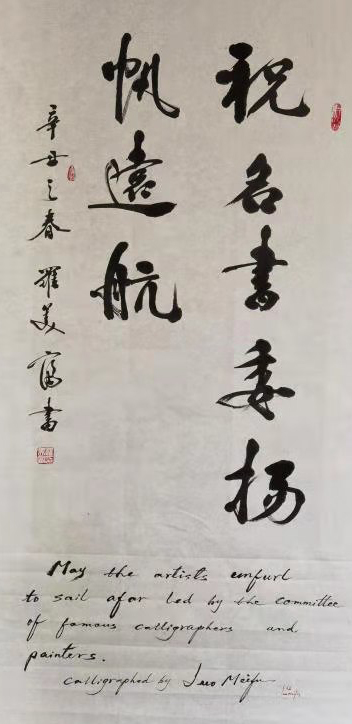 祝名書委揚
帆遠航
辛丑之春 羅美富書
May the artists unfurl
to sail afar led by the committee
of famous calligraphers and
painters.
calligraphed by Luo Meifu